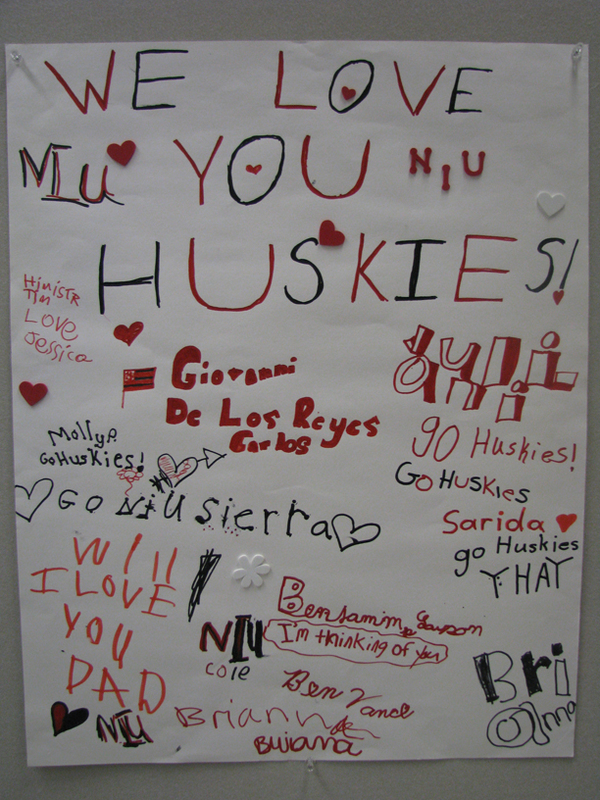 WE LOVE
NIU YOU NIU
HUSKIES!
TIM
LOVE
Jessica
Giovanni
De Los Reyes
Carlos
go Huskies!
Molly P.
Go Huskies!
GO HUSKIES
GO NIU Sierra
Sarida
go Huskies
YHAY
Will
I LOVE
YOU
DAD
NIU
Benjamin
I'm thinking of you
NIU
Cole
Ben Vance
Briann
Briana
Bri